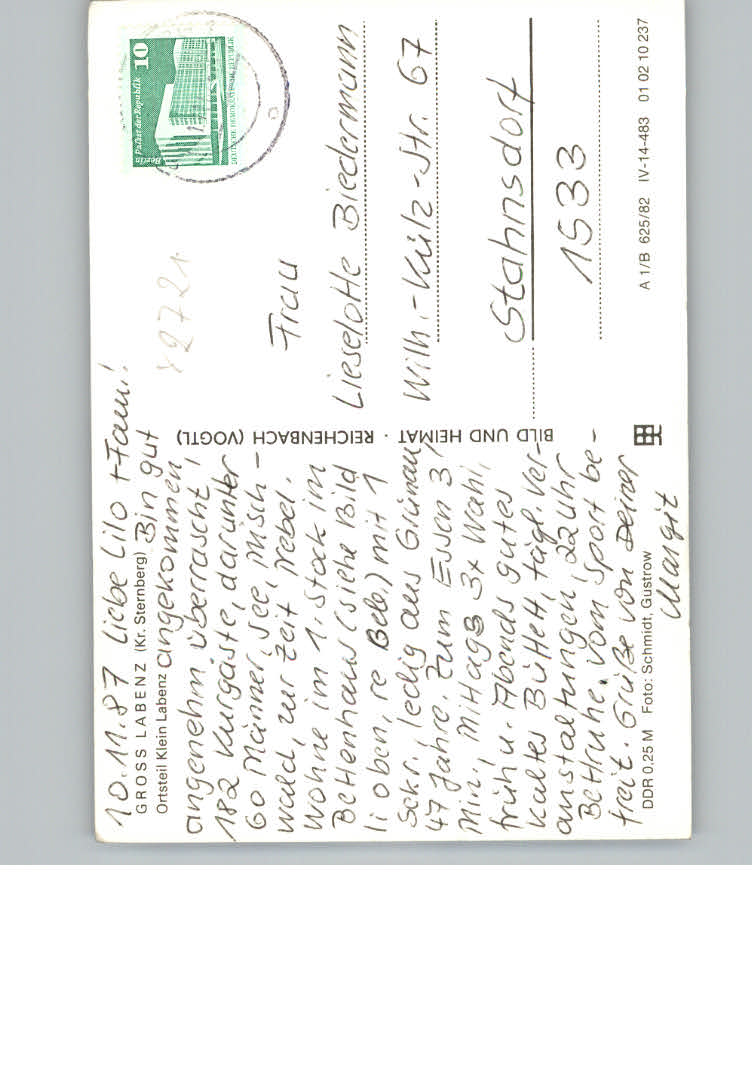 10.11.87 Liebe Lilo + Fam.!
GROSS LABENZ (Kr. Sternberg) Bin gut
Ortsteil Klein Labenz angekommen,
angenehm überrascht,
182 Kurgäste, darunter
60 Männer, See, Misch-
wald, zur Zeit Nebel.
Wohne im 1. Stock im
Bettenhaus (siehe Bild
li oben, re Bele.) mit 1
Sekr., ledig aus Grünau,
47 Jahre. Zum Essen 3
Min., Mittags 3x Wahl,
früh u. Abends gutes
kaltes Büffett, tägl. Ver-
anstaltungen, 22 Uhr
Bettruhe. Vom Sport be-
freit. Grüße von Deiner
Margit
DDR 0,25 M Foto: Schmidt, Gustrow
BILD UND HEIMAT · REICHENBACH (VOGTL)
Berlin Palast der Republik 10
DEUTSCHE DEMOKRATISCHE REPUBLIK
Frau
Lieselotte Biedermann
Wilh.-Külz-Str. 67
Stahnsdorf
1533
A 1/B 625/82 IV-14-483 01 02 10 237